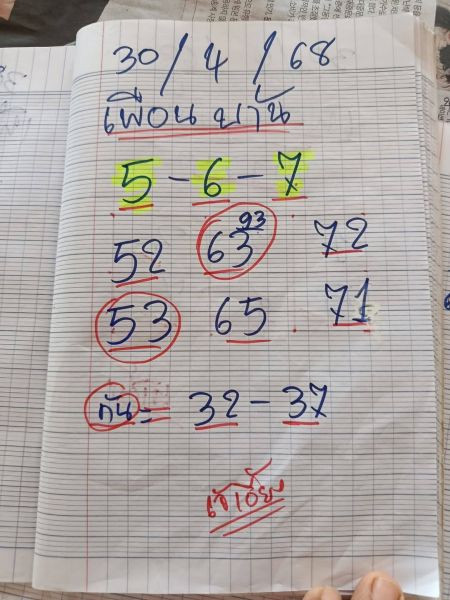 30/4/68
เพื่อน บ้าน
5-6-7
52 63 93 72
53 65 71
กัน = 32-37